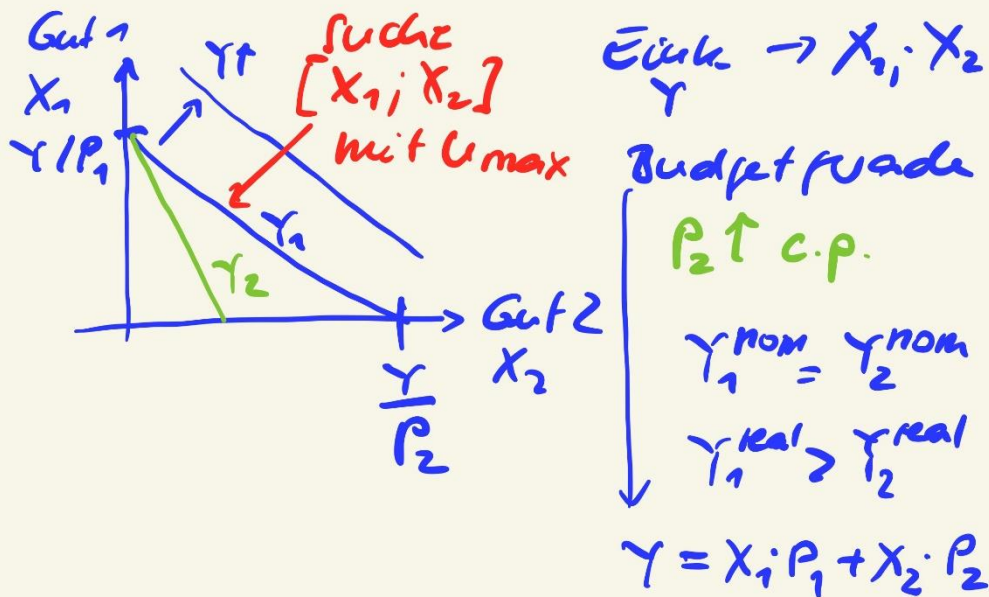 Gut 1
X₁
Y/P₁
Y↑
Suche
[X₁; X₂]
mit Umax
Y₁
Y₂
Gut 2
X₂
Y
P₂
Eink. → X₁; X₂
Y
Budgetgerade
P₂ ↑ c.p.
Y₁ⁿᵒᵐ = Y₂ⁿᵒᵐ
Y₁ʳᵉᵃˡ > Y₂ʳᵉᵃˡ
Y = X₁·P₁ + X₂·P₂